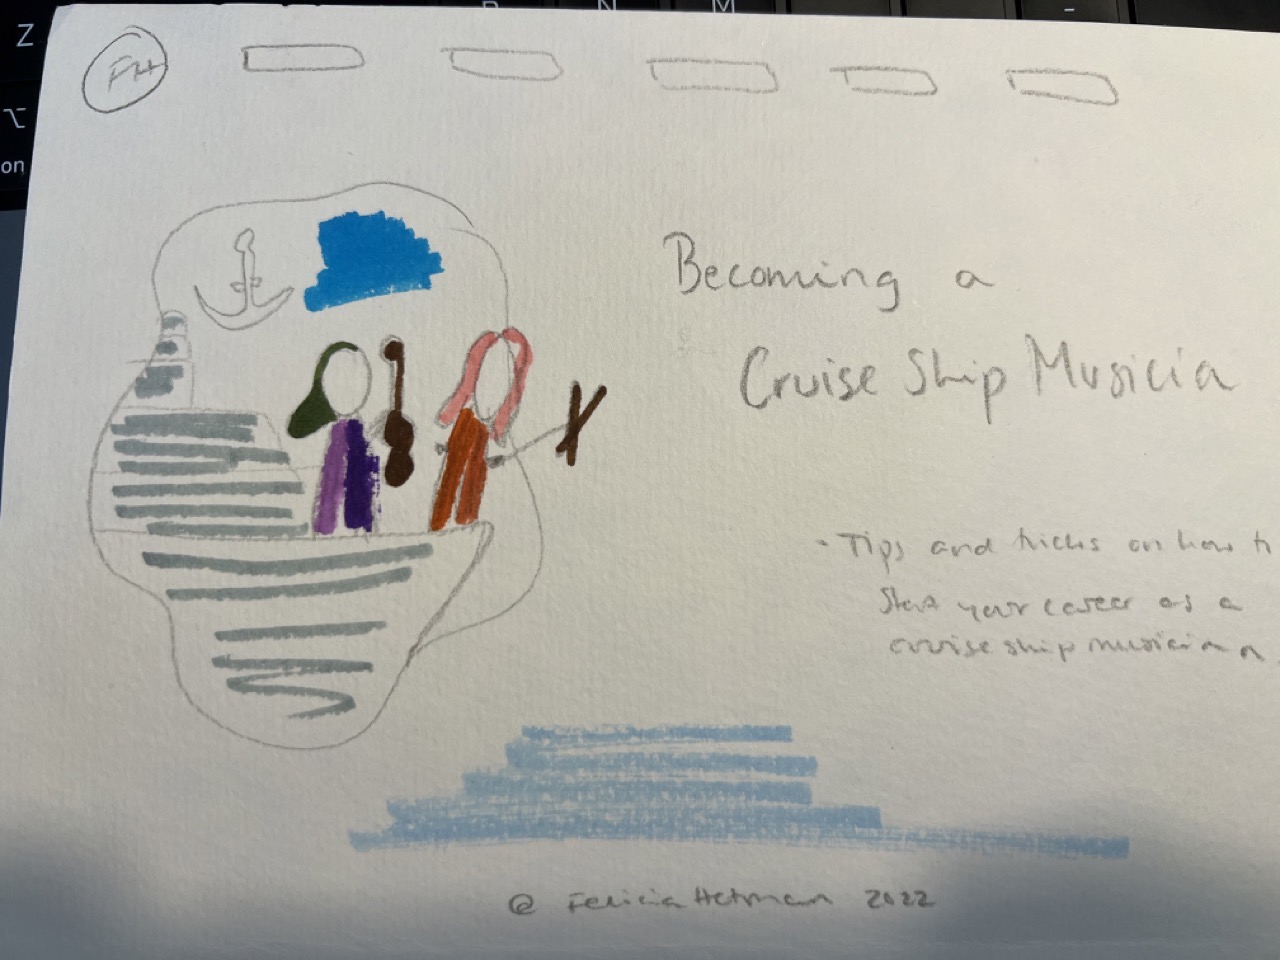 Z N M -
⌥
on
FH
Becoming a
Cruise Ship Musicia
• Tips and tricks on how t
Start your career as a
cruise ship musician
@ Felicia Hetman 2022